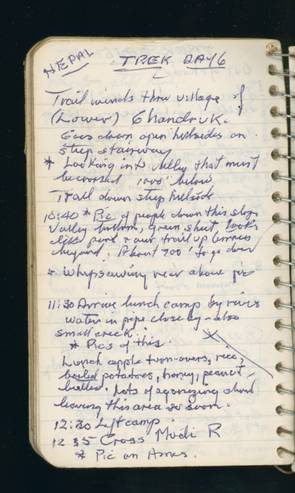 NEPAL
TREK DAY 6
Trail winds thru village of
(Lower) Ghandruk.
Goes down open hillsides on
steep stairways
* Looking into valley that must
be crossed 1000' below
Trail down steep hillside
10:40 * Pic of people down this slope
Valley bottom, green, shut, looks
like pond & our trail up terraces
beyond. About 700' to go down
* Whipsawing near above pic
11:30 Arrive lunch camp by river
Water in pipe close by - also
small creek.
* Pics of this.
Lunch apple turn-overs, rice,
boiled potatoes, honey, peanut
butter. Lots of agonizing about
leaving this area so soon.
12:30 Left camp.
12 35 Cross Modi R
* Pic on Annas.